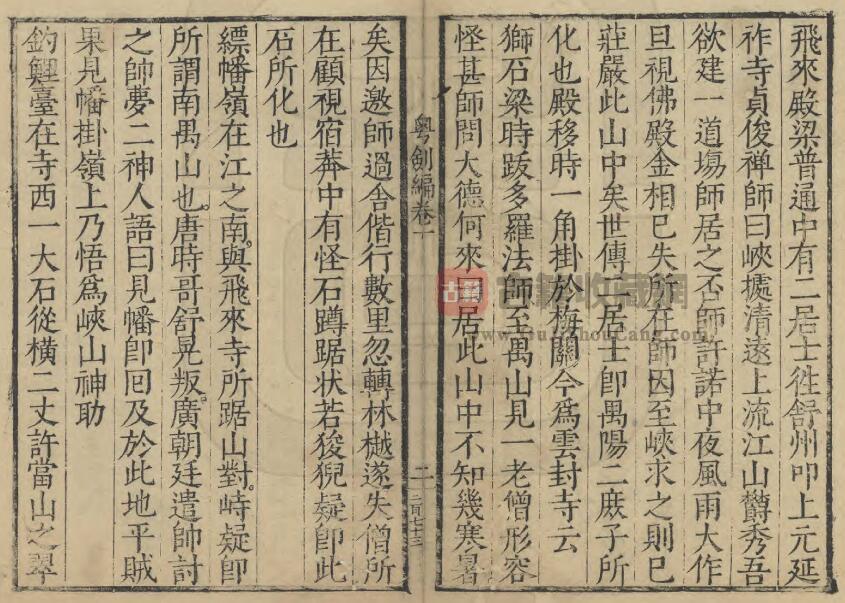 飛來殿梁普通中有二居士徃舒州叩上元延
祚寺貞俊禪師曰峽㨿清遠上流江山欝秀吾
欲建一道塲師居之否師許諾中夜風雨大作
旦視佛殿金相已失所在師因至峽求之則已
莊嚴此山中矣世傳二居士卽禺陽二庶子所
化也殿移時一角掛於梅關今爲雲封寺云
獅石梁時跋多羅法師至禺山見一老僧形容
怪甚師問大德何來曰居此山中不知幾寒暑
粤劍編卷一
二
二百七十三
矣因邀師過舍偕行數里忽轉林樾遂失僧所
在顧視宿莽中有怪石蹲踞状若狻猊疑卽此
石所化也
縹幡嶺在江之南與飛來寺所踞山對峙疑卽
所謂南禺山也唐時哥舒晃叛廣朝廷遣帥討
之帥夢二神人語曰見幡卽囘及於此地平賊
果見幡掛嶺上乃悟爲峽山神助
釣鯉臺在寺西一大石從橫二丈許當山之翠
古籍
古籍收藏網
www.GuJiShouCang.com